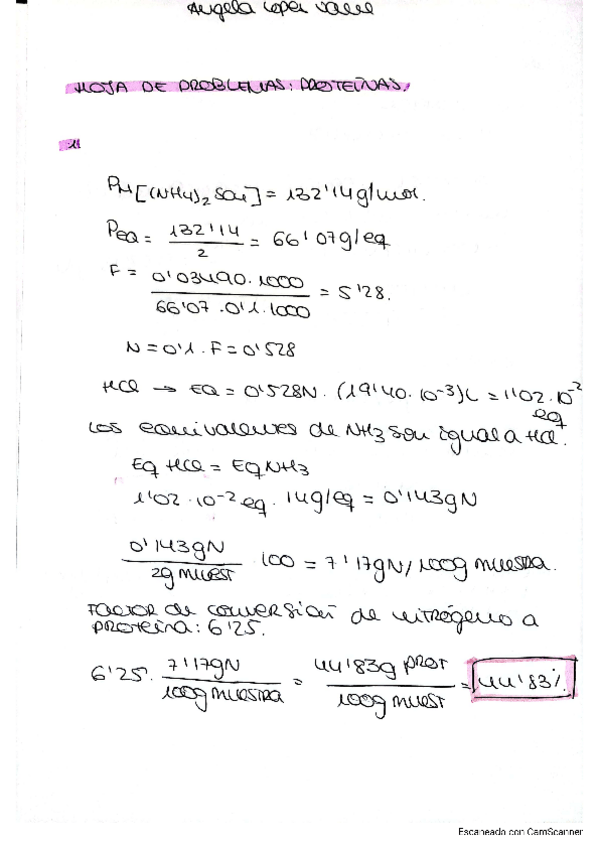 Angela Lopez Valle
HOJA DE PROBLEMAS: PROTEÍNAS.
1
PM[(NH4)2SO4] = 132'14g/mol.
PEQ = 132'14/2 = 66'07g/eq
F = 0'03490·1000/66'07·0'1·1000 = 5'28.
N = 0'1·F = 0'528
HCl → EQ = 0'528N·(19'40·10-3)L = 1'02·10-2 eq
Los equivalentes de NH3 son igual a HCl.
EQ HCl = EQ NH3
1'02·10-2 eq·14g/eq = 0'143gN
0'143gN/2g muest · 100 = 7'17gN/100g muestra.
Factor de conversion de nitrógeno a
proteína: 6'25.
6'25· 7'17gN/100g muestra = 44'83g prot/100g muest = 44'83%.
Escaneado con CamScanner